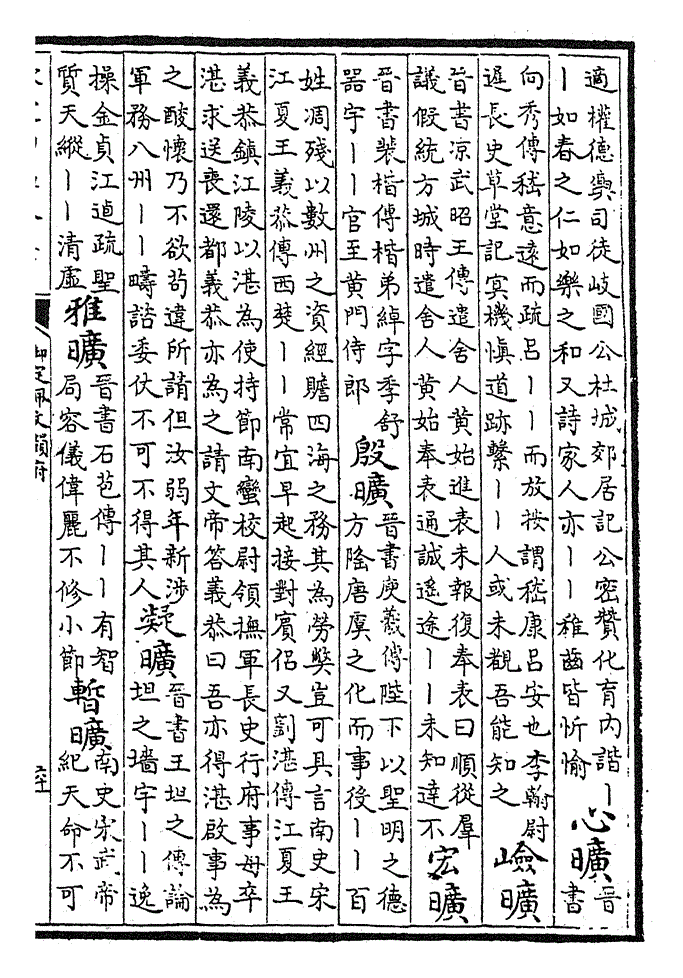 適權德輿司徒岐國公杜城郊居記公密贊化育內諧丨
丨如春之仁如樂之和又詩家人亦丨丨稚齒皆忻愉
心曠
晉
書
向秀傳嵇意遠而疏呂丨丨而放按謂嵇康呂安也李翰尉
遲長史草堂記寘機慎道跡繫丨丨人或未觀吾能知之
嶮曠
晉書凉武昭王傳遣舍人黄始進表未報復奉表曰順從羣
議假統方城時遣舍人黄始奉表通誠遙途丨丨未知達不
宏曠
晉書裴楷傳楷弟綽字季舒
器宇丨丨官至黄門侍郎
殷曠
晉書庾羲傳陛下以聖明之德
方隆唐虞之化而事役丨丨百
姓凋殘以數州之資經贍四海之務其為勞獘豈可具言南史宋
江夏王義恭傳西楚丨丨常宜早起接對賓侶又劉湛傳江夏王
義恭鎮江陵以湛為使持節南蠻校尉領撫軍長史行府事母卒
湛求送喪還都義恭亦為之請文帝答義恭曰吾亦得湛啟事為
之酸懷乃不欲苟違所請但汝弱年新涉
軍務八州丨丨疇諮委仗不可不得其人
凝曠
晉書王坦之傳論
坦之墻宇丨丨逸
操金貞江逌疏聖
質天縱丨丨清虛
雅曠
晉書石苞傳丨丨有智
局容儀偉麗不修小節
暫曠
南史宋武帝
紀天命不可
御定佩文韻府